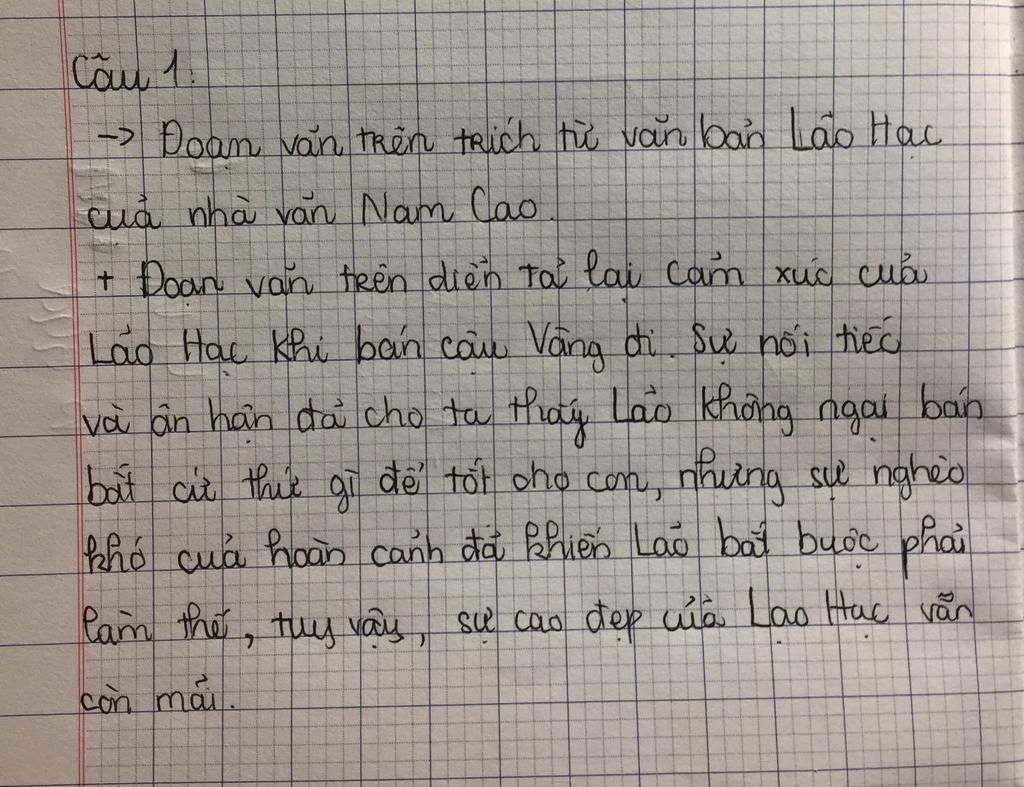 Câu 1:
-> Đoạn văn trên trích từ văn bản Lão Hạc
của nhà văn Nam Cao.
+ Đoạn văn trên diễn tả lại cảm xúc của
Lão Hạc khi bán cậu Vàng đi. Sự nối tiếc
và ân hận đã cho ta thấy Lão không ngại bán
bất cứ thứ gì để tốt cho con, nhưng sự nghèo
khó của hoàn cảnh đã khiến Lão bắt buộc phải
làm thế, tuy vậy, sự cao đẹp của Lạo Hạc vẫn
còn mãi.